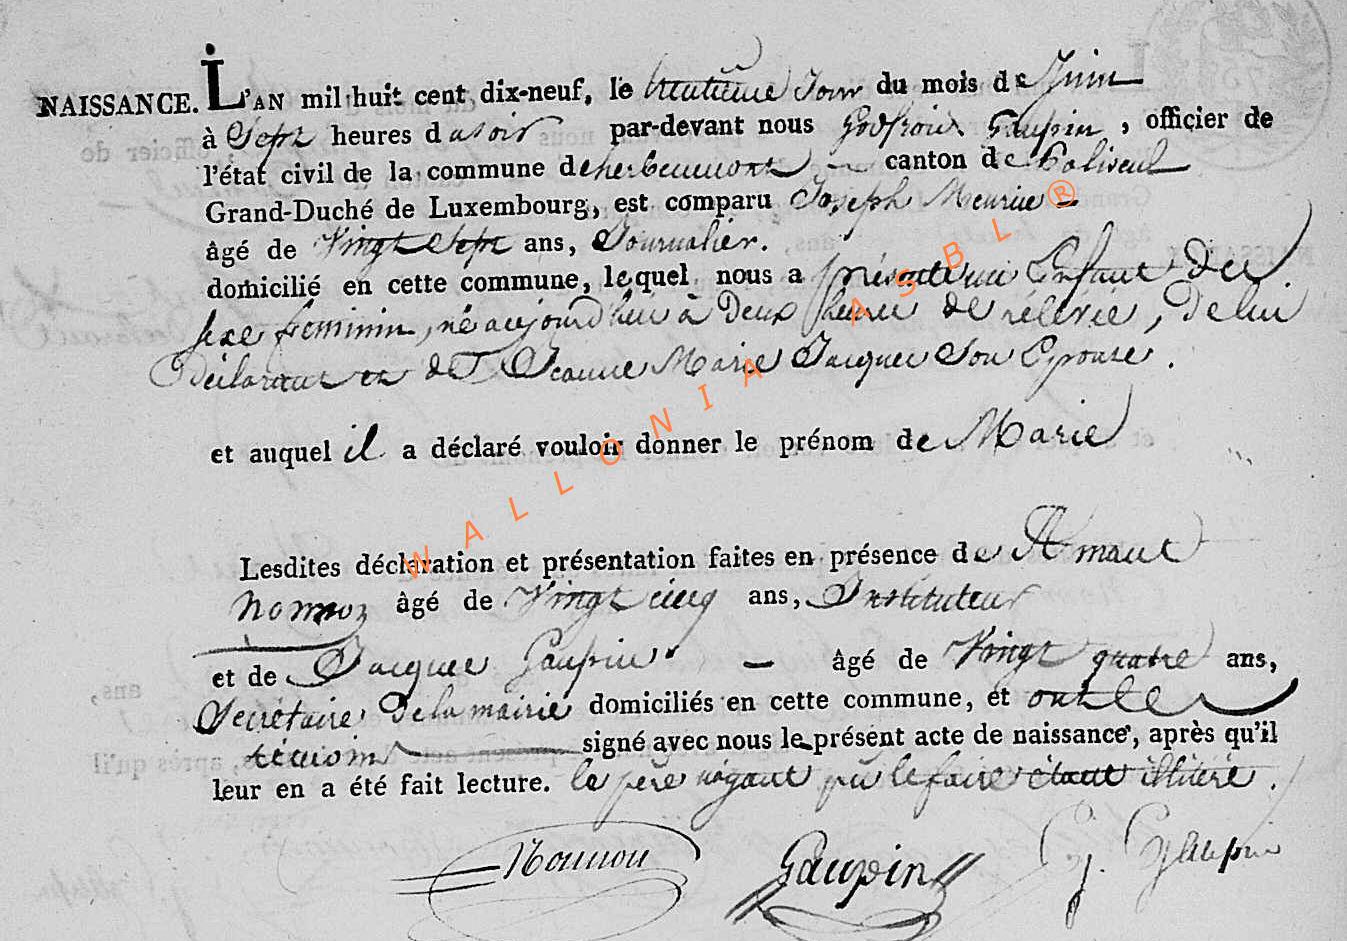 NAISSANCE. L'AN mil huit cent dix-neuf, le huitième Jour du mois de Juin
à Sept heures du soir par-devant nous Godfroix Gaupin, officier de
l'état civil de la commune de herbeumont canton de Paliseul
Grand-Duché de Luxembourg, est comparu Joseph Meurice
âgé de Vingt Sept ans, Journalier.
domicilié en cette commune, lequel nous a présenté un Enfant Du
sexe feminin, né aujourd'hui à Deux heures de rélevée, De lui
Déclarant et de Jeanne Marie Jacques Son Epouse.
et auquel il a déclaré vouloir donner le prénom de Marie
Lesdites déclaration et présentation faites en présence de Amant
âgé de Vingt cinq ans, Instituteur
et de Jacques Gaupin âgé de Vingt quatre ans,
Secrétaire De la mairie domiciliés en cette commune, et ont les
témoins signé avec nous le présent acte de naissance, après qu'il
leur en a été fait lecture. le père n'ayant pû le faire étant illitéré.
Gaupin G. Gaupin
WALLONIA ASBL ®